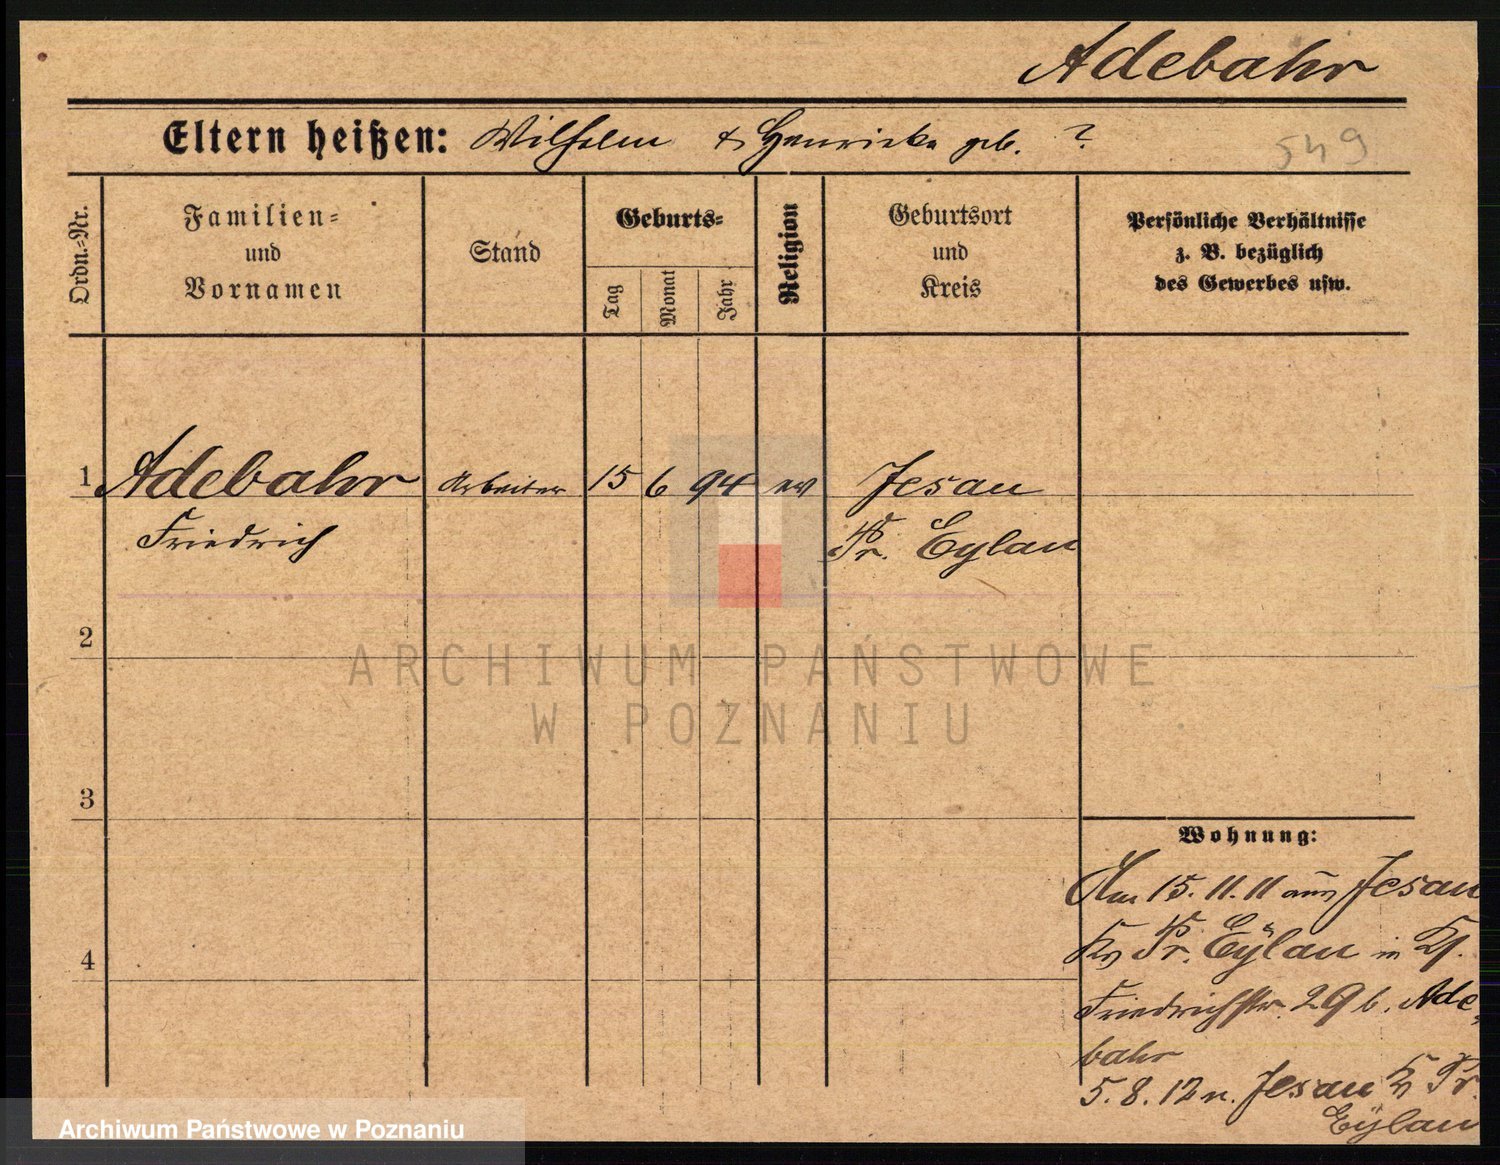 Adebahr
Eltern heißen: Wilhelm & Henriette geb. ?
549
Ordn.=Nr.
Familien=
und
Vornamen
Stand
Geburts=
Tag
Monat
Jahr
Religion
Geburtsort
und
Kreis
Persönliche Verhältnisse
z. B. bezüglich
des Gewerbes usw.
1 Adebahr Arbeiter 15 6 94 ev Jesau
Friedrich Pr. Eylau
2
3
4
Wohnung:
Am 15.11.11 aus Jesau
Krs Pr. Eÿlau in
Friedrichstr. 29 b. Ade=
bahr
5.8.12 n. Jesau Kr Pr.
Eÿlau
ARCHIWUM PAŃSTWOWE
W POZNANIU
Archiwum Państwowe w Poznaniu